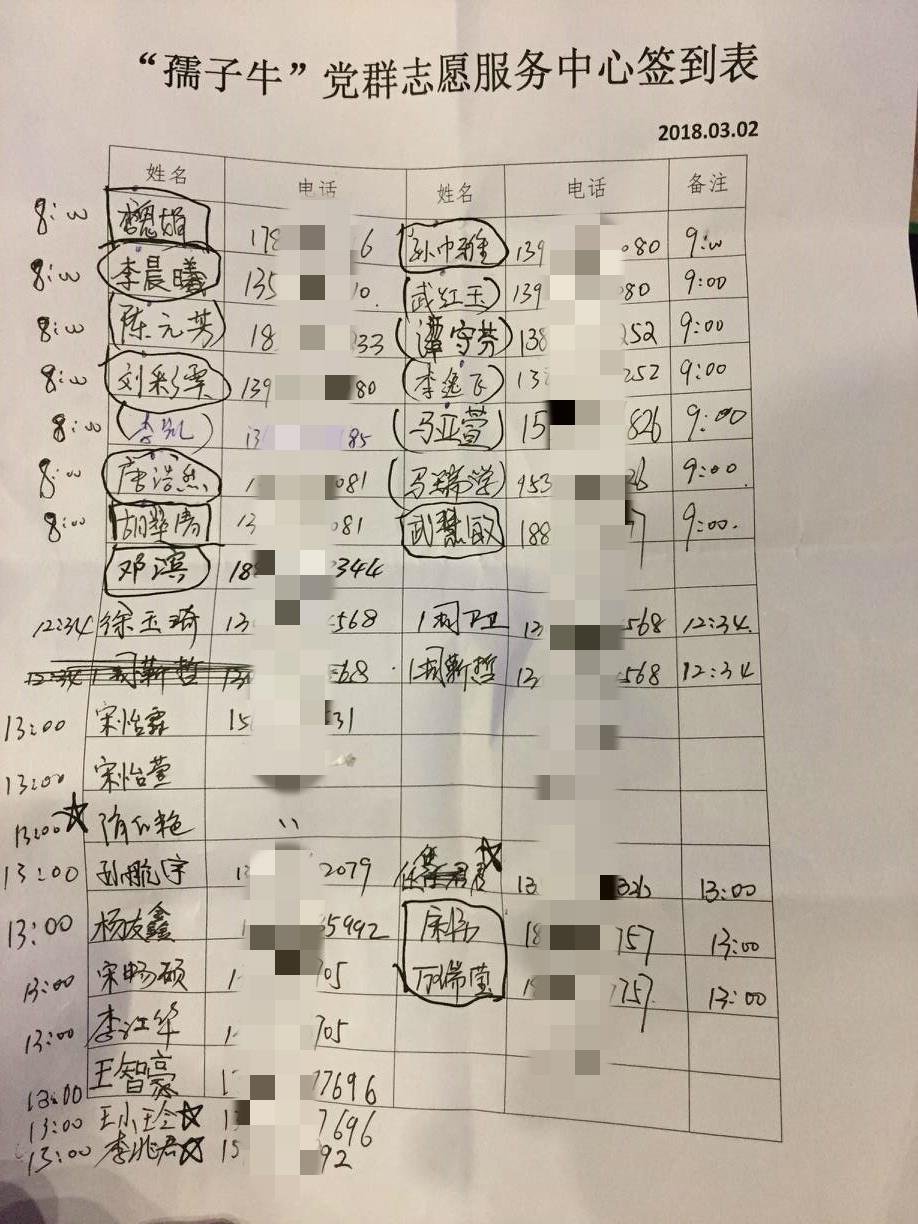 “孺子牛”党群志愿服务中心签到表
2018.03.02
姓名 电话 姓名 电话 备注
8:00 178 6 139 080 9:00
8:00 李晨曦 135 10. 武红玉 139 080 9:00
8:00 陈元芳 18 333 谭守芬 138 252 9:00
8:00 刘彩霞 139 80 李逸飞 13 252 9:00
8:00 李凯 13 85 马亚萱 15 826 9:00
8:00 唐浩然 1 081 马瑞滢 153 26 9:00.
8:00 胡翠清 13 081 武慧敏 188 7 9:00.
邓滨 18 344
12:34 徐玉琦 13 568 周卫 13 568 12:34.
周新哲 68 周新哲 13 568 12:34
13:00 宋怡霖 15 31
13:00 宋怡萱
13:00 隋仁艳 \\
13:00 孙航宇 13 2079 13 326 13:00
13:00 杨友鑫 1 35992 宋伟 18 757 13:00
13:00 宋畅硕 1 705 18 757 13:00
13:00 李江华 1 705
13:00 王智豪 1 77696
13:00 王小玲 13 7696
13:00 李兆君 15 92